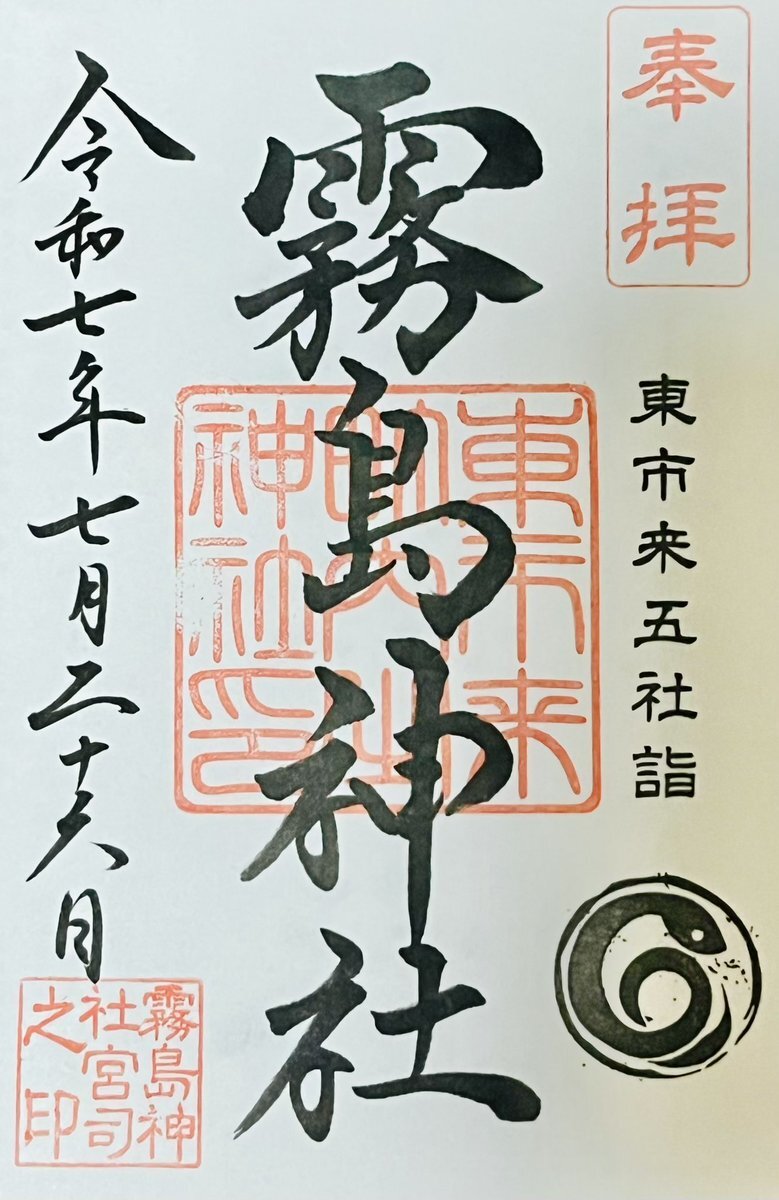 奉拝
東市来五社詣
霧島神社
東市来
神社印
令和七年七月二十六日
霧島神
社宮司
之印